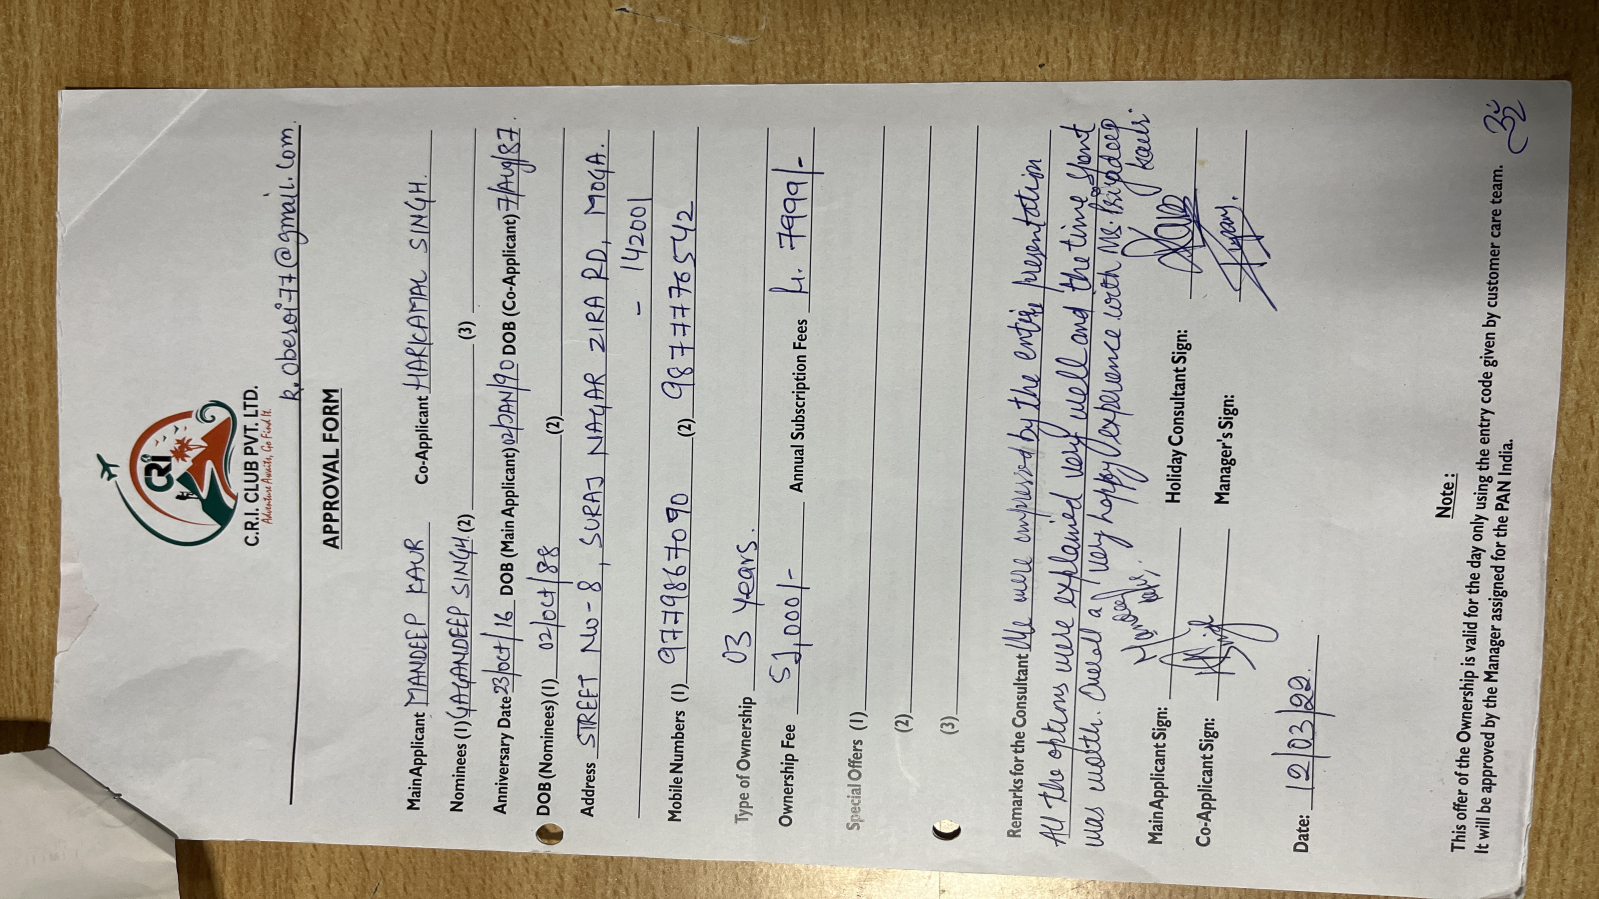 CRI
C.R.I. CLUB PVT. LTD.
Adventure Awaits, Go Find It.
R.Oberoi77@gmail.com
APPROVAL FORM
Main Applicant MANDEEP KAUR Co-Applicant HARKAMAL SINGH.
Nominees (1) GAGANDEEP SINGH. (2) (3)
Anniversary Date 23/oct/16 DOB (Main Applicant) 02/JAN/90 DOB (Co-Applicant) 7/Aug/87.
DOB (Nominees) (1) 02/oct/88 (2)
Address STREET No-8, SURAJ NAGAR ZIRA RD, MOGA.
- 142001
Mobile Numbers (1) 9779867090 (2) 9877776542
Type of Ownership 03 Years.
Ownership Fee 51,000/- Annual Subscription Fees 7999/-
Special Offers (1)
(2)
(3)
Remarks for the Consultant We were impressed by the entire presentation
All the options were explained very well and the time spent
was worth. Overall a very happy experience with Ms. Priyadeep
Kaur.
Main Applicant Sign: Mandeep Kaur. Holiday Consultant Sign:
Co-Applicant Sign: Manager's Sign:
Date: 12/03/22.
Note :
This offer of the Ownership is valid for the day only using the entry code given by customer care team.
It will be approved by the Manager assigned for the PAN India.